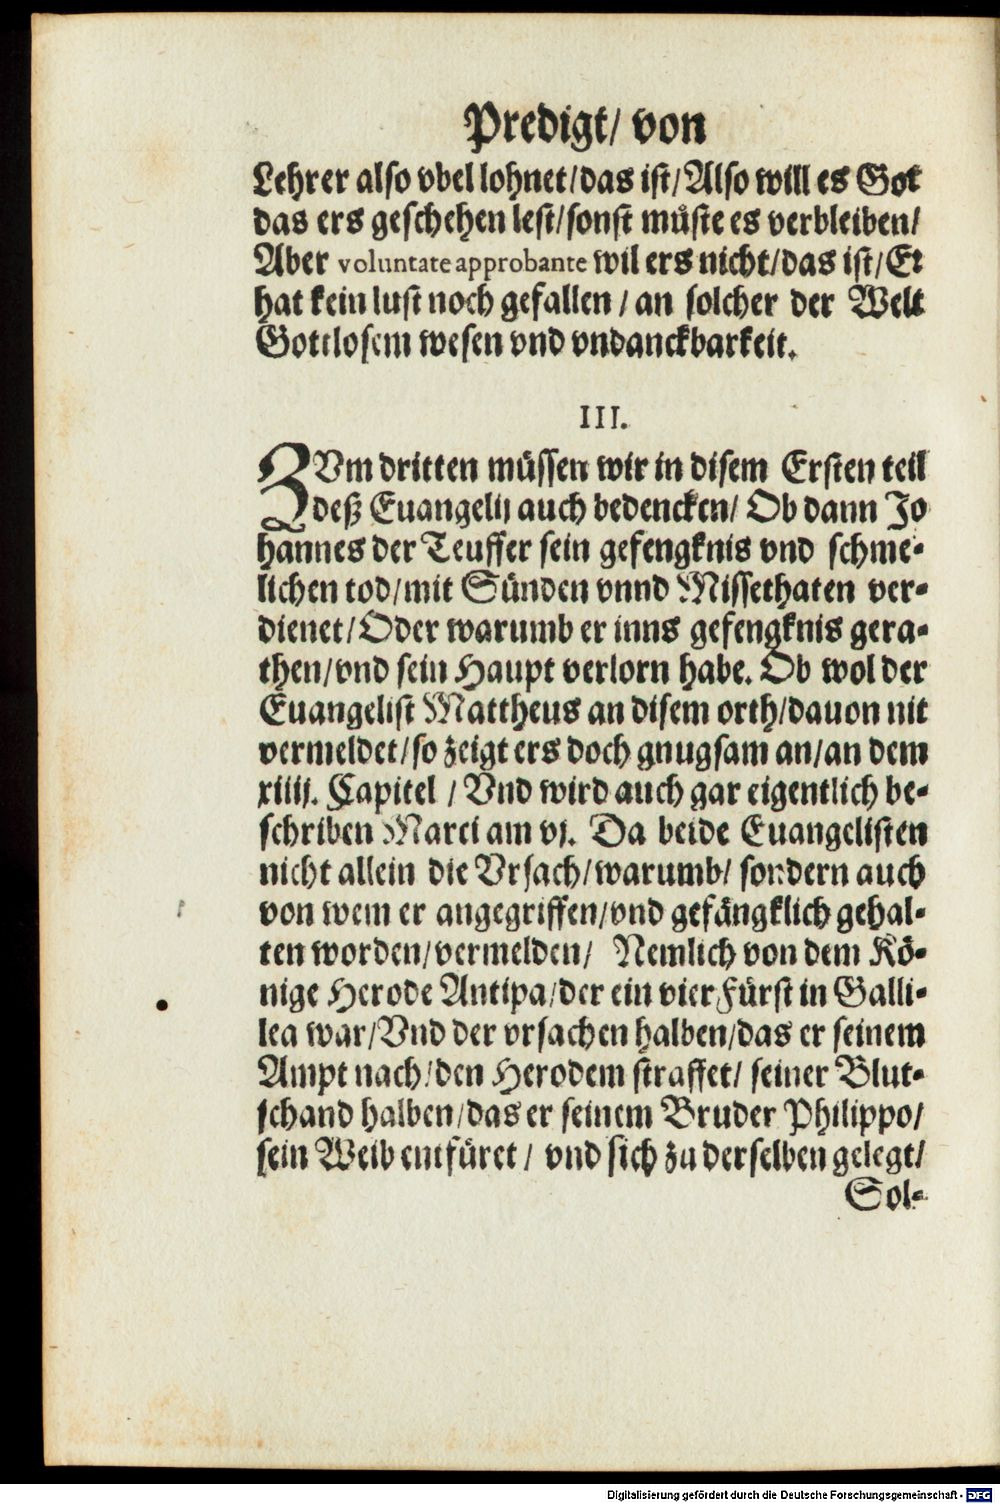 Predigt/ von
Lehrer also vbel lohnet/das ist/Also will es Got
das ers geschehen lest/sonst müste es verbleiben/
Aber voluntate approbante wil ers nicht/das ist/Er
hat kein lust noch gefallen / an solcher der Welt
Gottlosem wesen vnd vndanckbarkeit.
III.
ZVm dritten müssen wir in disem Ersten teil
deß Euangelij auch bedencken/ Ob dann Jo
hannes der Teuffer sein gefengknis vnd schme-
lichen tod/mit Sünden vnnd Missethaten ver-
dienet/Oder warumb er inns gefengknis gera-
then/vnd sein Haupt verlorn habe. Ob wol der
Euangelist Mattheus an disem orth/dauon nit
vermeldet/so zeigt ers doch gnugsam an/an dem
xiiij. Capitel / Vnd wird auch gar eigentlich be-
schriben Marci am vj. Da beide Euangelisten
nicht allein die Vrsach/warumb/ sondern auch
von wem er angegriffen/vnd gefängklich gehal-
ten worden/vermelden/ Nemlich von dem Kö-
nige Herode Antipa/der ein vier Fürst in Galli-
lea war/Vnd der vrsachen halben/das er seinem
Ampt nach/den Herodem straffet/ seiner Blut-
schand halben/das er seinem Bruder Philippo/
sein Weib entfüret / vnd sich zu derselben gelegt/
Sol-
Digitalisierung gefördert durch die Deutsche Forschungsgemeinschaft - DFG